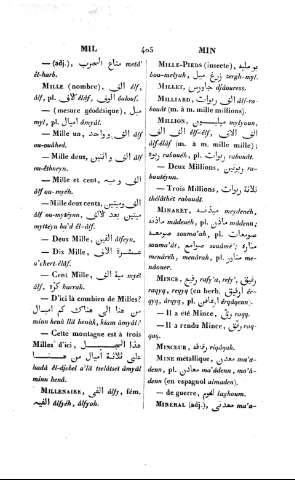 MIL 405 MIN
— (adj.), متاع الحرب metâ'
êl-harb.
MILLE (nombre), الف âlf,
âlf, pl. الاف êlâf, الوف ôulouf.
— (mesure géodésique), ميل
myl, pl. اميال âmyâl.
— Mille un, الف وواحد âlf
ou-ouâhed.
— Mille deux, الف واثنين âlf
ou-êthneyn.
— Mille et cent, الف ومية
âlf ou-myêh.
— Mille deux cents, الف وميتين
âlf ou-mytêyn, ميتين بعد الالف
mytteyn ba'd êl-âlf.
— Deux Mille, الفين âlfeyn.
— Dix Mille, عشرة الاف
a'chert êlâf.
— Cent Mille, مية الف myêt
âlf, كرة kourah.
— D'ici là combien de Milles?
من هنا الى هناك كم اميال
minn henâ îlâ henâk, kiam âmyâl?
— Cette montagne est à trois
Milles d'ici, هذا الجبل
على ثلاثة اميال من هنا
hadâ êl-djebel a'lâ tselâtset âmyâl
minn henâ.
MILLENAIRE, الفي âlfy, fém.
الفيه âlfyêh, âlfyah.
MILLE-PIEDS (insecte), بو مليه
bou-melyah, زرغ ميل zergh-myl.
MILLET, جاورس djâouress.
MILLIARD, الف ربوات âlf-ra-
bouât (m. à m. mille millions).
MILLION, مليون mylyoun,
الف الاف âlf-êlf, الف الف
âlf-âlf (m. à m. mille mille):
ربوة rabouêh, pl. ربوات rabouât.
— Deux Millions, ربوتين ra-
bouêtêyn.
— Trois Millions, ثلاثة ربوات
thelâthet rabouât.
MINARET, ميذنه meydenêh,
مادنه mâdneh, pl. مادن mâdenn;
صومعة souma'ah, pl. صوامع
souama'; مناره
menârêh, menârah, pl. مناور me-
nâouer.
MINCE, رفيع rafy'a, refy', رقيق
raqyq, reqyq (en berb. ارقيق
qyq, ârqyq, pl. ارقاقن êrqâqenn).
— Il a été Mince, رق raqq.
— Il a rendu Mince, رقق raq-
qaq.
MINCEUR, رقاقة riqâqah.
MINE métallique, معدن ma'a-
denn, pl. معادن ma'âdenn, ma'â-
denn (en espagnol almaden).
— de guerre, لغوم laghoum.
MINÉRAL (adj.), معدني ma'a-